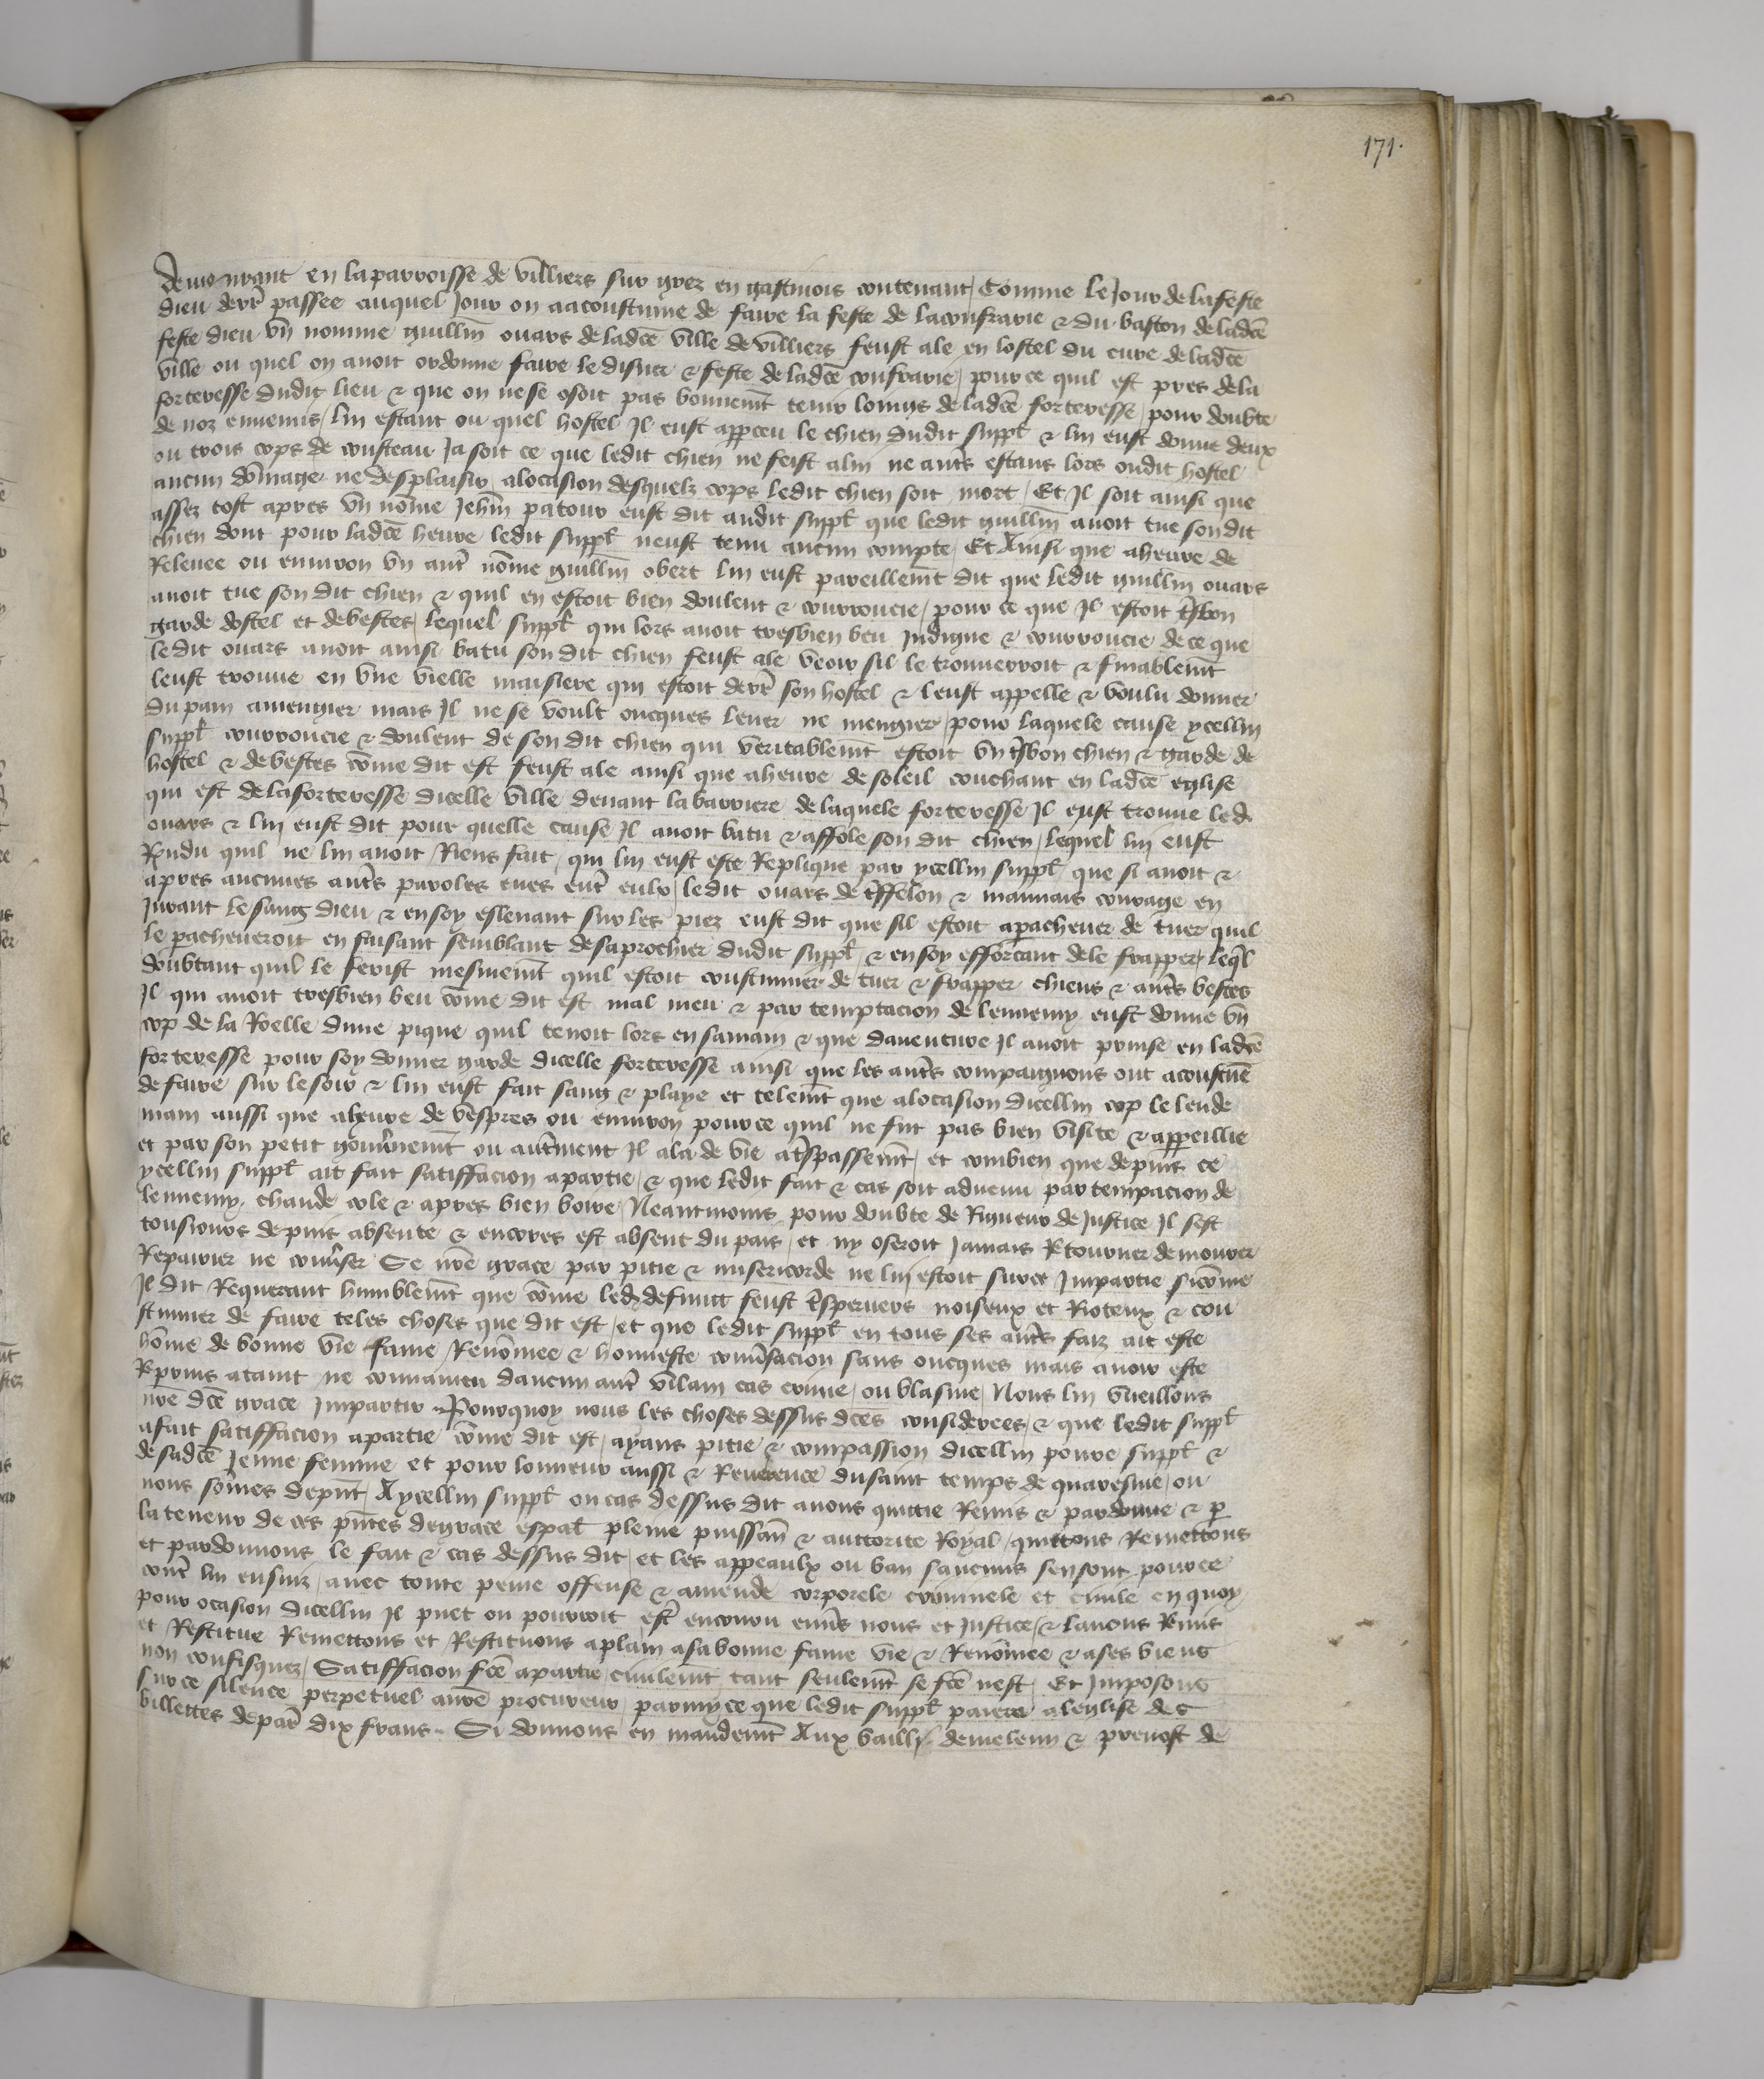 171.
demourant en la parroisse de villiers sur grez en gastinois contenant Comme le Jour de la feste
dieu derr̄ passee auquel Jour on a acoustume de faire la feste de la confrarie & du baston de ladcē
feste dieu vn nomme guillm̄ ouars de ladcē ville de villiers feust ale en lostel du cure de ladcē
ville ou quel on auoit ordonne faire le disner & feste de ladcē confrarie pour ce quil est pres de la
forteresse dudit lieu & que on ne se osoit pas bonnemt̄ tenir loings de ladcē forteresse pour doubte
de noz ennemis lui estant ou quel hostel Il eust apꝑceu le chien dudit suppl̄ & lui eust donne deux
ou trois cops de cousteau Ja soit ce que ledit chien ne feist a lui ne aut̄s estans lors oudit hostel
aucun dōmage ne desplaisir a locasion desquelz cops ledit chien soit mort Et Il soit ainsi que
assez tost apres vn nōme Jehn̄ patour eust dit audit suppl̄ que ledit guillm̄ auoit tue sondit
chien dont pour ladcē heure ledit suppl̄ neust tenu aucun compte Et Ainsi que a heure de
Releuee ou enuiron vn aut̄ nōme guillm̄ obert lui eust pareillemt̄ dit que ledit guillm̄ ouars
auoit tue son dit chien & quil en estoit bien doulent & courroucie pour ce que Il estoit tr̄sbon
garde dostel et de bestes lequel suppl̄ qui lors auoit tresbien beu Indigne & courroucie de ce que
ledit ouars auoit ainsi batu son dit chien feust ale veoir sil le trouuerroit & finablemt̄
leust trouue en vne vielle maisiere qui estoit derr̄ son hostel & leust appelle & voulu donner
du pain a mengier mais Il ne se voult oncques leuer ne mengier pour laquele cause ycellui
suppl̄ courroucie & doulent de son dit chien qui veritablemt̄ estoit vn tr̄sbon chien & garde de
hostel & de bestes cōme dit est feust ale ainsi que a heure de soleil couchant en ladcē eglise
qui est de la forteresse dicelle ville deuant la barriere de laquele forteresse Il eust trouue led.
ouars & lui eust dit pour quelle cause Il auoit batu & affole son dit chien lequel lui eust
Rn̄du quil ne lui auoit Riens fait qui lui eust este Replique par ycellui suppl̄ que si auoit &
apres aucunes aut̄s paroles eues ent̄ eulx ledit ouars de tr̄sfelon & mauuais courage en
Jurant le sang dieu & en soy esleuant sur les piez eust dit que sil estoit a ꝑacheuer de tuer quil
le ꝑacheueroit en faisant semblant de saprochier dudit suppl̄ & en soy efforcant de le frapper leq̄l
doubtant quil le ferist mesmemt̄ quil estoit coustumier de tuer & frapper chiens & aut̄s bestes
Il qui auoit tresbien beu cōme dit est mal meu & par temptacion de lennemy eust donne vn
cop de la Roelle dune pique quil tenoit lors en sa main & que dauenture Il auoit prinse en ladcē
forteresse pour soy donner garde dicelle forteresse ainsi que les aut̄s compaignons ont acoustūe
de faire sur le soir & lui eust fait sang & playe et telemt̄ que a locasion dicellui cop le lende
main aussi que a heure de vespres ou enuiron pour ce quil ne fut pas bien visite & appeillie
et par son petit gouu̇nemt̄ ou aut̄ment Il ala de vie a tr̄spassemt̄ et combien que depuis ce
ycellui suppl̄ ait fait satiffacion a partie & que ledit fait & cas soit aduenu par tempacion de
lennemy chaude cole & apres bien boire Neantmoins pour doubte de Rigueur de Justice Il sest
tousiours depuis absente & encores est absent du pais et ny oseroit Jamais Retourner demourer
Repairier ne conuer̄ser Se nr̄e grace par pitie & misericorde ne lui estoit sur ce Impartie si cōme
Il dit Requerant humblemt̄ que cōme led. defunct feust tr̄spervers noiseux et Rioteux & cou
stumier de faire teles choses que dit est et que ledit suppl̄ en tous ses aut̄s faiz ait este
hōme de bonne vie fame Renōmee & honneste conu̇sacion sans oncques mais auoir este
Repris ataint ne conuaincu daucun aut̄ vilain cas crime ou blasme Nous lui vueillons
nr̄e dcē grace Impartir Pourquoy nous les choses dessus dcēs considerees & que ledit suppl̄
a fait satiffacion a partie cōme dit est ayans pitie & compassion dicellui poure suppl̄ &
de sadcē Jeune femme et pour lonneur aussi & Reuerence du saint temps de quaresme ou
nous sōmes depn̄t A ycellui suppl̄ ou cas dessus dit auons quictie Remis & pardonne & ꝑ
la teneur de ces pn̄tes de grace espāl pleine puissan̄ & auctorite Royal quittons Remettons
et pardonnons le fait & cas dessus dit et les appeaulx ou ban saucuns sen sont pour ce
cont̄ lui ensuiz auec toute peine offense & amende corporele criminele et ciuile en quoy
pour ocasion dicellui Il puet ou pourroit est̄ encouru enu̇s nous et Justice & lauons Remis
et Restitue Remettons et Restituons a plain a sa bonne fame vie & Renōmee & a ses biens
non confisquez Satiffacion fcē a partie ciuilemt̄ tant seulemt̄ se fcē nest Et Imposons
sur ce silence perpetuel a nr̄e procureur parmy ce que ledit suppl̄ paiera a leglise des
billettes de par̄ dix frans Si donnons en mandemt̄ Aux bailli de meleun & preuost de